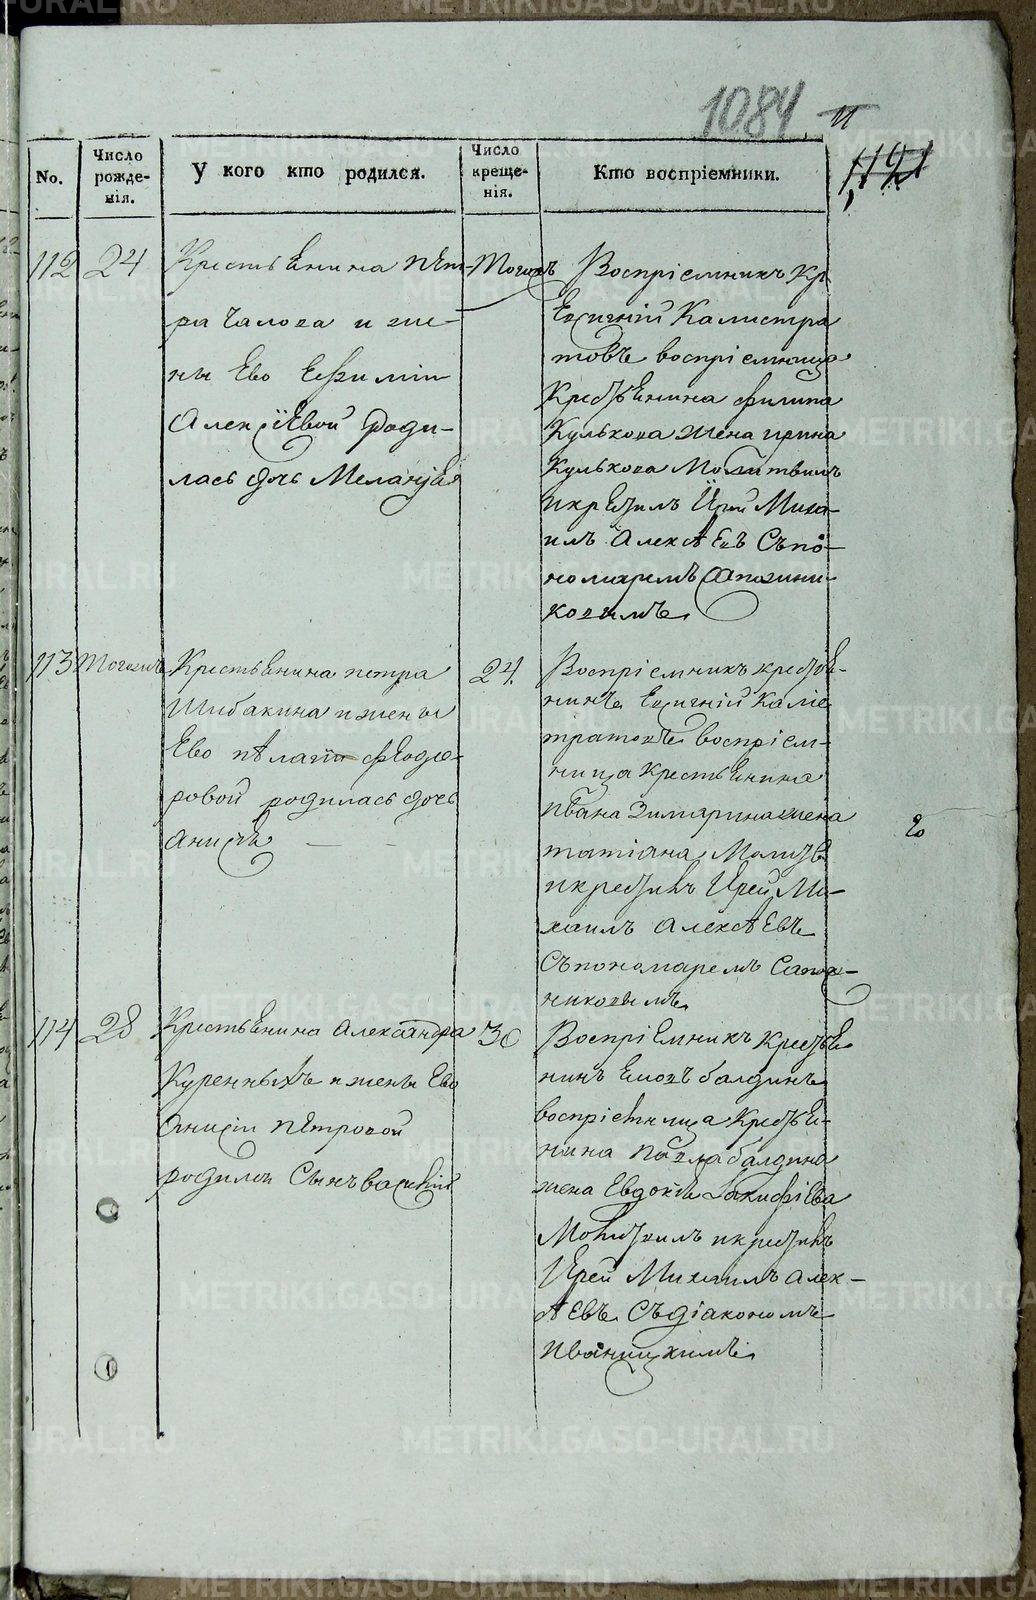 1084
11
1121
No.
Число рожде-нія.
У кого кто родился.
Число креще-нія.
Кто воспріемники.
112
24
КрестьЕнина пЕт-
ра Чалова и же-
ны Ево Ефиміи
АлексіЕвой роди-
лась дочь Меланія
Тогожъ
Воспріемникъ Кр
Евгигній Калистра
товъ воспріемница
КрестьЕнина филипа
Кулькова жена ирина
Кулькова Молитвилъ
икрЕстилъ Іерей Миха-
илъ АлексѣЕвъ Съпо-
номаремъ Сапожни-
ковымъ
113
Тогожъ
КрестьЕнина петра
Шибакина и жены
Ево пѣлагіи фЕодо-
ровой родилась дочь
анисія
24.
Воспріемникъ крестьЕ-
нинъ Евгигній Калис
тратовъ воспріем-
ница КрестьЕнина
ивана Зимарина жена
татіана Молитв
икрестилъ Иерей Ми-
хаилъ АлексѣЕвъ
Съпономаремъ Сапож-
никовымъ
20
114
28
КрестьЕнина Александра
Куренныхъ и жены Ево
Анисіи пЕтровой
родился Сынъ василій
30
ВоспріЕмникъ КрестьЕ
нинъ балдинъ
воспріемница КрестьЕ-
нина павла балдина
жена Евдокія
Молитвилъ икрестилъ
Иерей Михаилъ Алек-
ѣЕвъ Съдіакономъ
иваницкимъ
METRIKI.GASO-URAL.RU